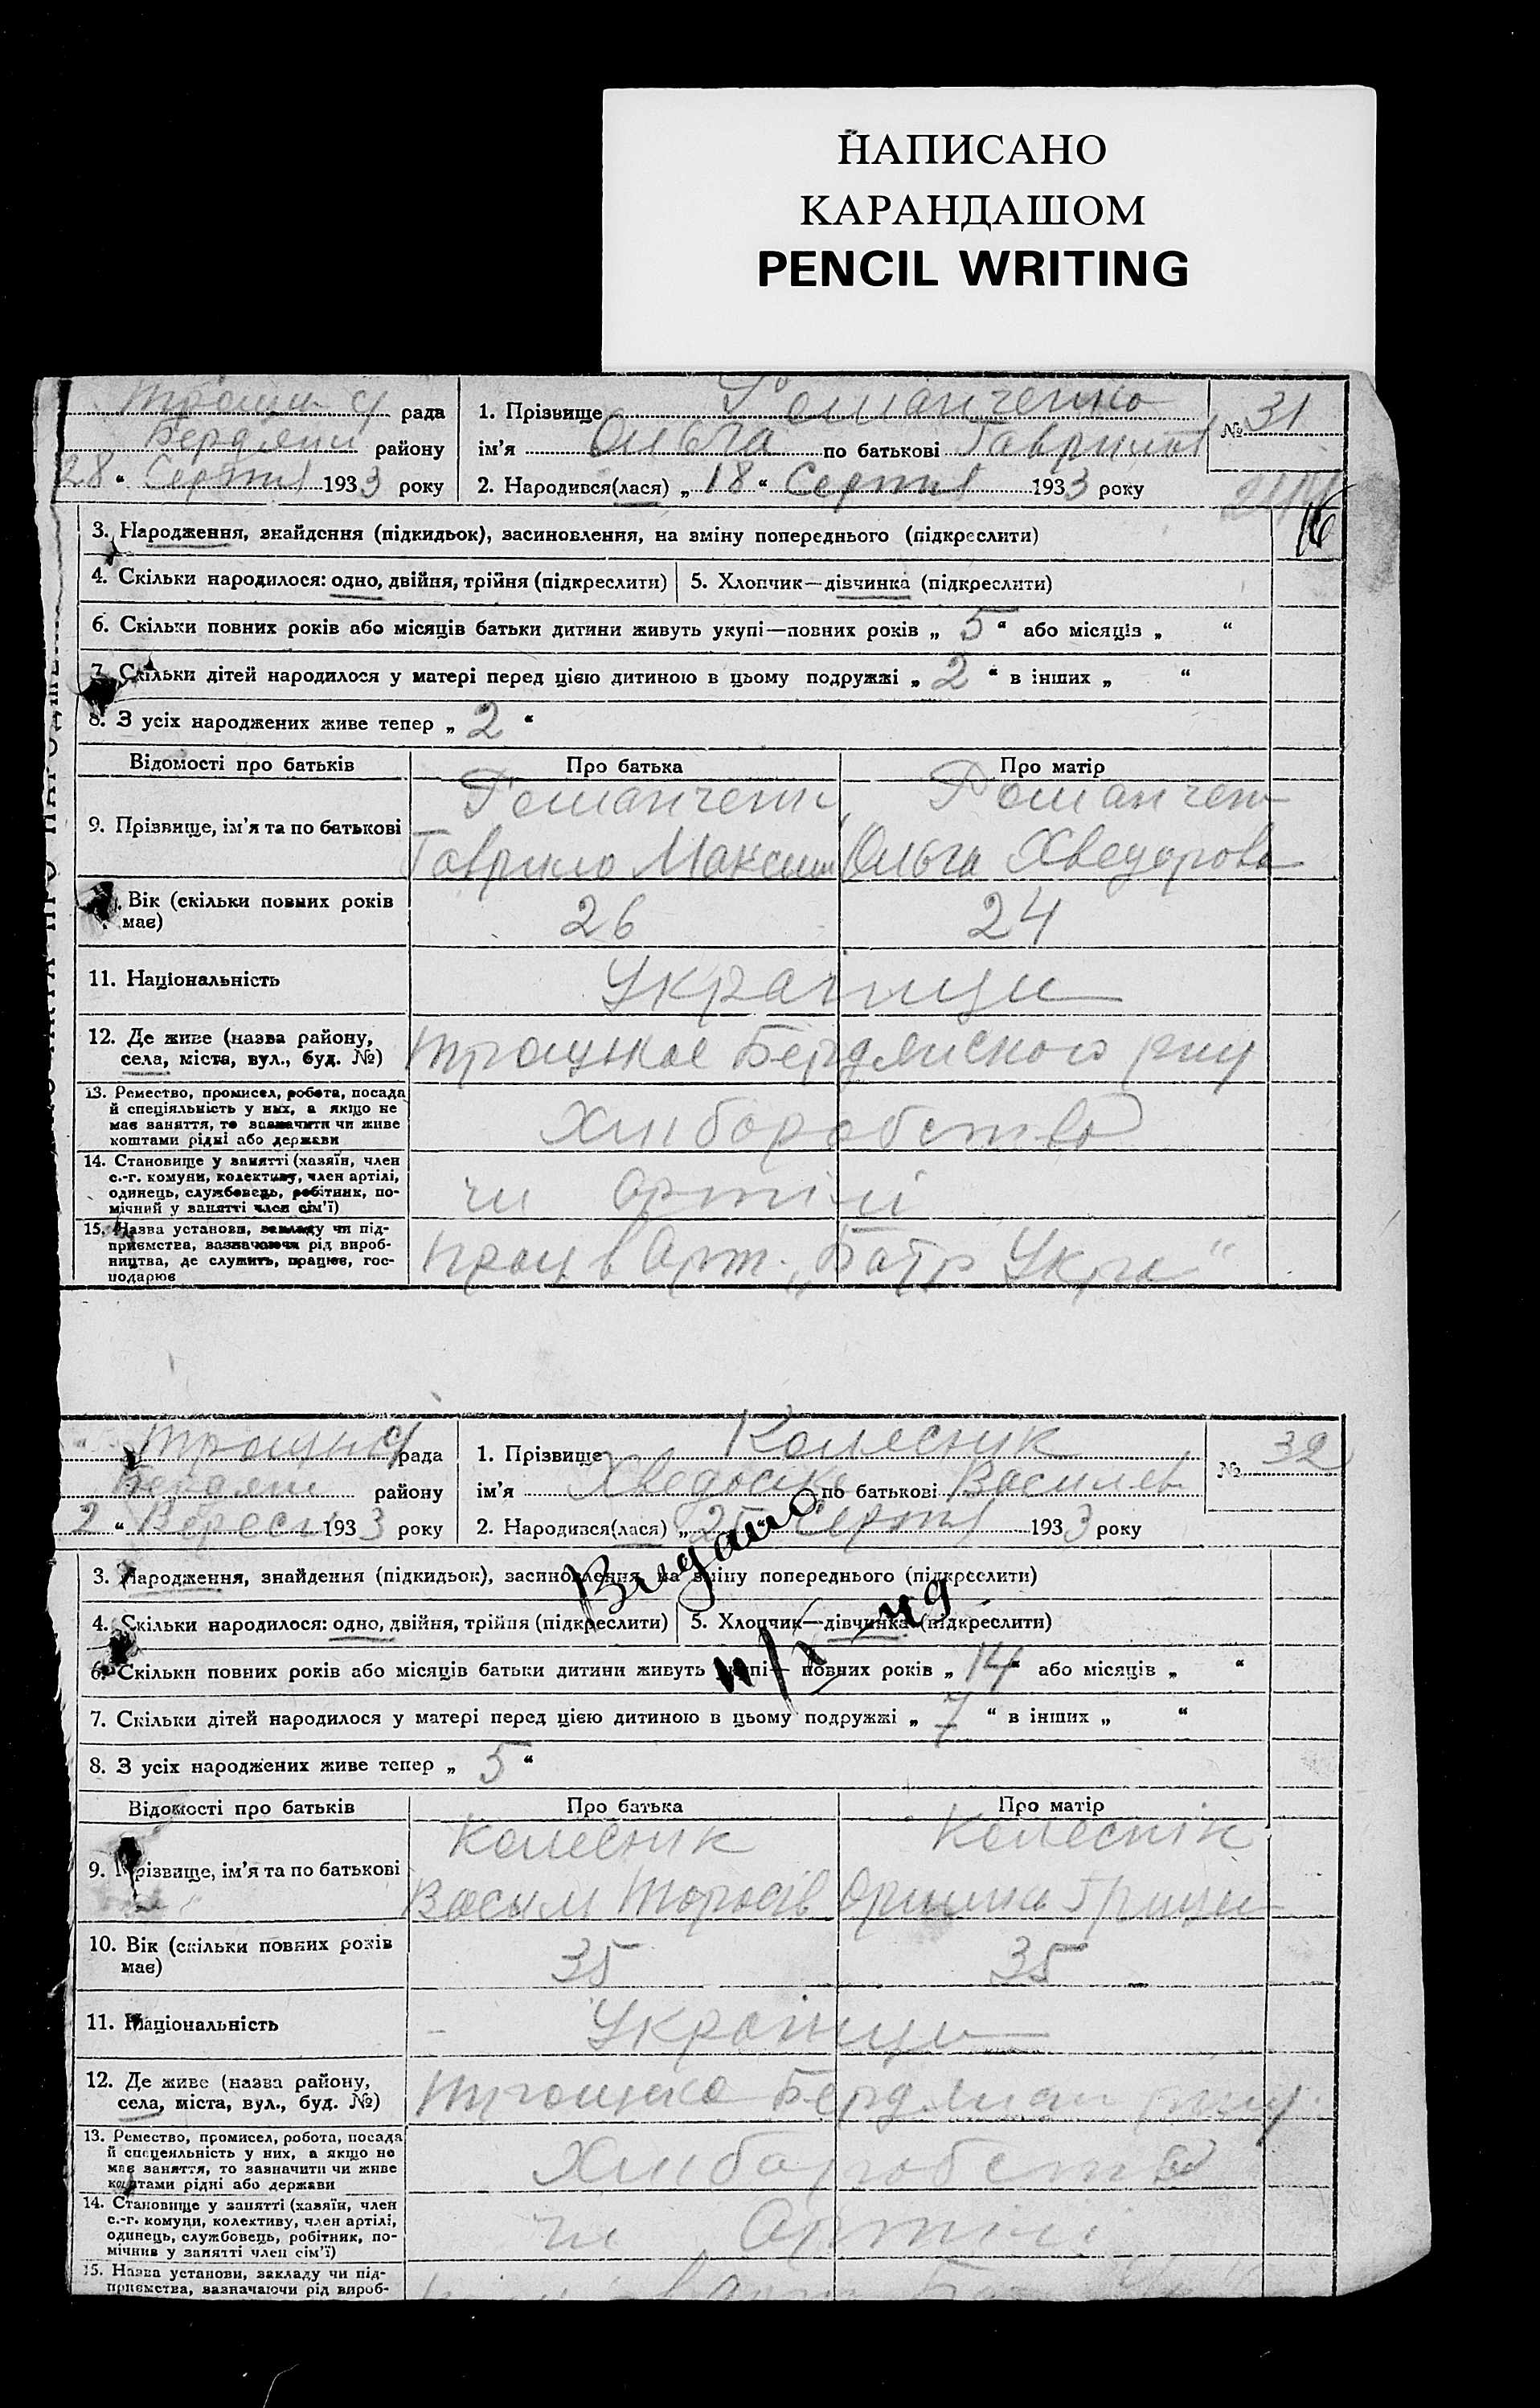 НАПИСАНО
КАРАНДАШОМ
PENCIL WRITING
рада
району
28 “ Серпня 1933 року
1. Прізвище Романченко
ім’я Ольга по батькові Гаврилов
2. Народився(лася) „ 18 “ Серпня 1933 року
№ 31
16
3. Народження, знайдення (підкидьок), засиновлення, на зміну попереднього (підкреслити)
4. Скільки народилося: одно, двійня, трійня (підкреслити) 5. Хлопчик—дівчинка (підкреслити)
6. Скільки повних років або місяців батьки дитини живуть укупі—повних років „ 5 “ або місяців „ “
7. Скільки дітей народилося у матері перед цією дитиною в цьому подружжі „ 2 “ в інших „ “
8. З усіх народжених живе тепер „ 2 “
Відомості про батьків Про батька Про матір
9. Прізвище, ім’я та по батькові
Романченк Романчен
Гаврило Максим Ольга Хведорова
Вік (скільки повних років
має)
26 24
11. Національність
Українци
12. Де живе (назва району,
села, міста, вул., буд. №)
Троцькое Бердянского рну
13. Ремество, промисел, робота, посада
й спеціяльність у них, а якщо не
має заняття, то зазначити чи живе
коштами рідні або держави
Хліборобство
14. Становище у занятті (хазяїн, член
с.-г. комуни, колективу, член артілі,
одинець, службовець, робітник, по-
мічний у занятті член сім’ї)
чл Артілі
15. Назва установи, закладу чи під-
приємства, зазначаючи рід вироб-
ництва, де служить, працює, гос-
подарює
прац в Арт. „Батр Укра“
рада
району
2 “ Вересн 1933 року
1. Прізвище Колесник
ім’я Хведоська по батькові Василев
2. Народився(лася) „ 25 “ Серпня 1933 року
№ 32
Видано
3. Народження, знайдення (підкидьок), засиновлення, на зміну попереднього (підкреслити)
4. Скільки народилося: одно, двійня, трійня (підкреслити) 5. Хлопчик—дівчинка (підкреслити)
6. Скільки повних років або місяців батьки дитини живуть укупі— повних років „ 14 “ або місяців „ “
7. Скільки дітей народилося у матері перед цією дитиною в цьому подружжі „ 7 “ в інших „ “
8. З усіх народжених живе тепер „ 5 “
Відомості про батьків Про батька Про матір
9. Прізвище, ім’я та по батькові
Колесник Колеснік
Васил Тарасів
10. Вік (скільки повних років
має)
35 35
11. Національність
Українци
12. Де живе (назва району,
села, міста, вул., буд. №)
13. Ремество, промисел, робота, посада
й спецеяльність у них, а якщо не
має заняття, то зазначити чи живе
коштами рідні або держави
Хліборобство
14. Становище у занятті (хазяїн, член
с.-г. комуни, колективу, член артілі,
одинець, службовець, робітник, по-
мічнив у занятті член сім’ї)
чл Артілі
15. Назва установи, закладу чи під-
приємства, зазначаючи рід вироб-